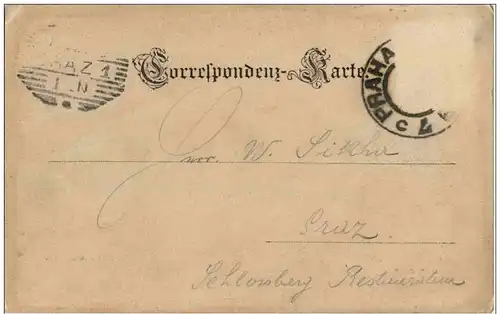 RAZ 1
Correspondenz-Karte
PRAHA
W. Sikha
Graz
Schlossberg Restauration